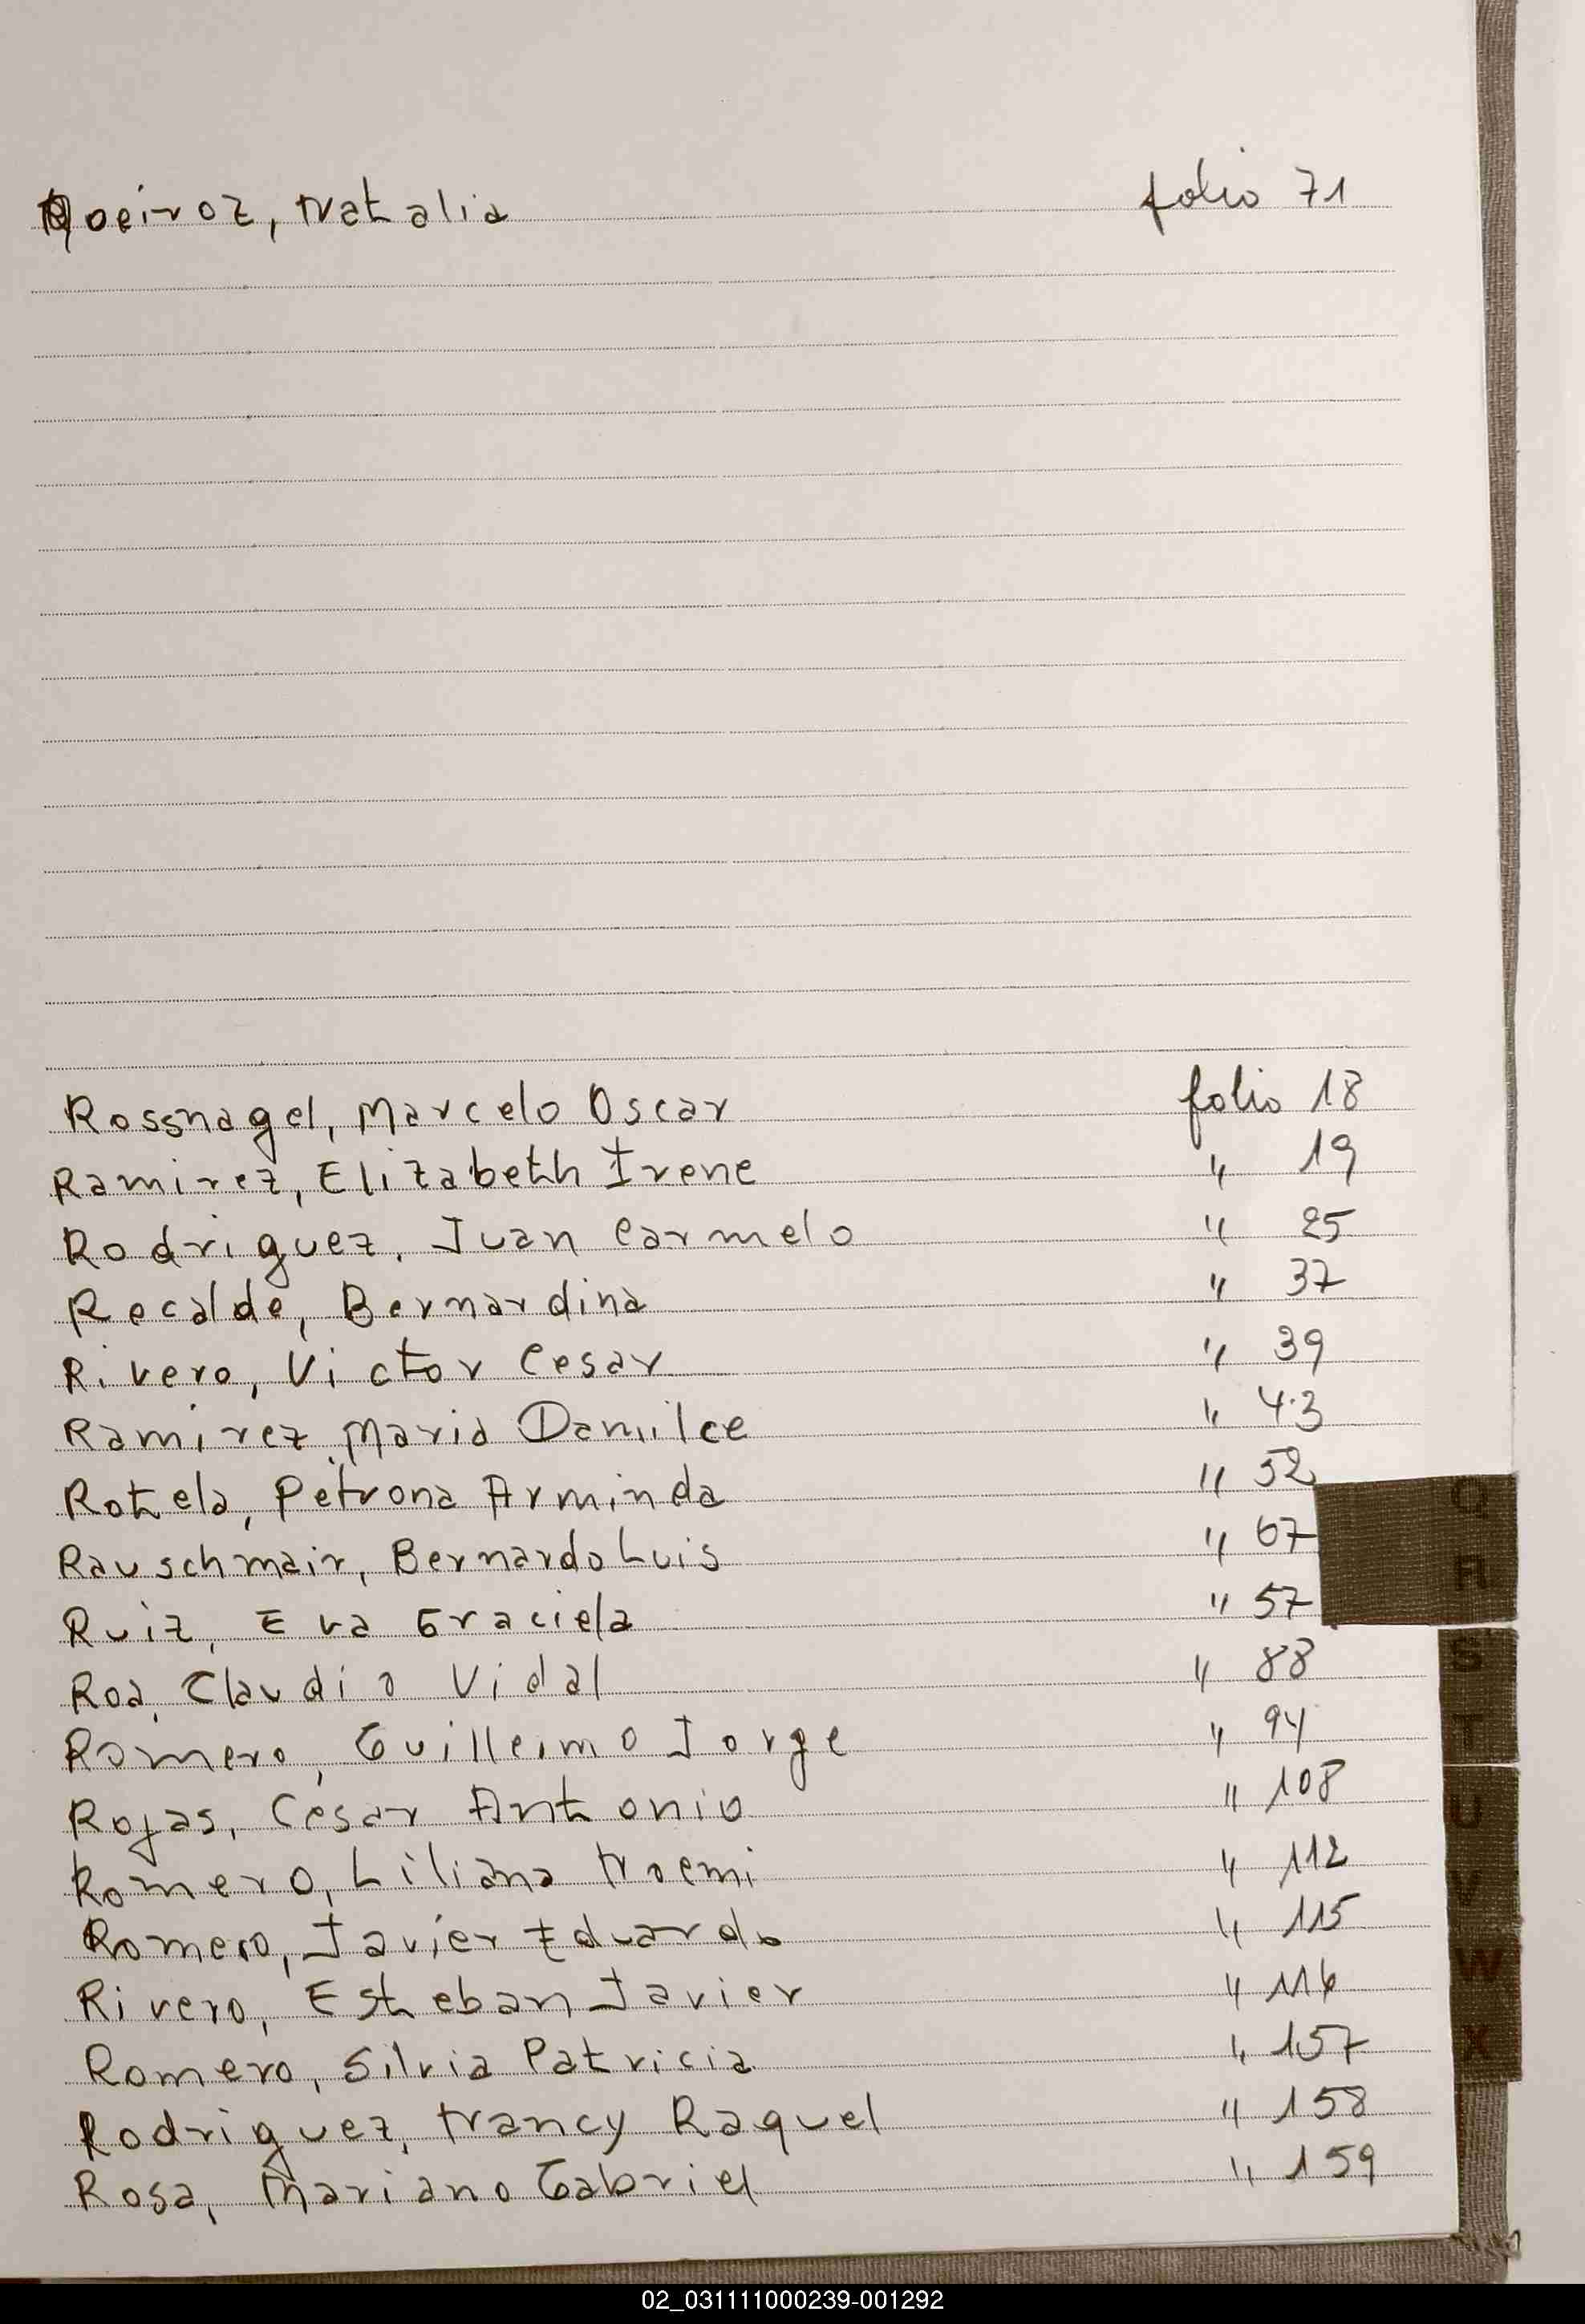 Queiroz, Natalia folio 71
Rossnagel, Marcelo Oscar folio 18
Ramirez, Elizabeth Irene " 19
Rodriguez, Juan Carmelo " 25
Recalde, Bernardina " 37
Rivero, Victor Cesar " 39
Ramirez, Maria Damilce " 43
Rotela, Petrona Arminda " 52
Rauschmair, Bernardo Luis " 67
Ruiz, Eva Graciela " 57
Roa, Claudio Vidal " 88
Romero, Guillermo Jorge " 94
Rojas, César Antonio " 108
Romero, Liliana Noemi " 112
Romero, Javier Eduardo " 115
Rivero, Esteban Javier " 116
Romero, Silvia Patricia " 157
Rodriguez, Nancy Raquel " 158
Rosa, Mariano Gabriel " 159
Q
R
S
T
U
V
W
X
02_031111000239-001292